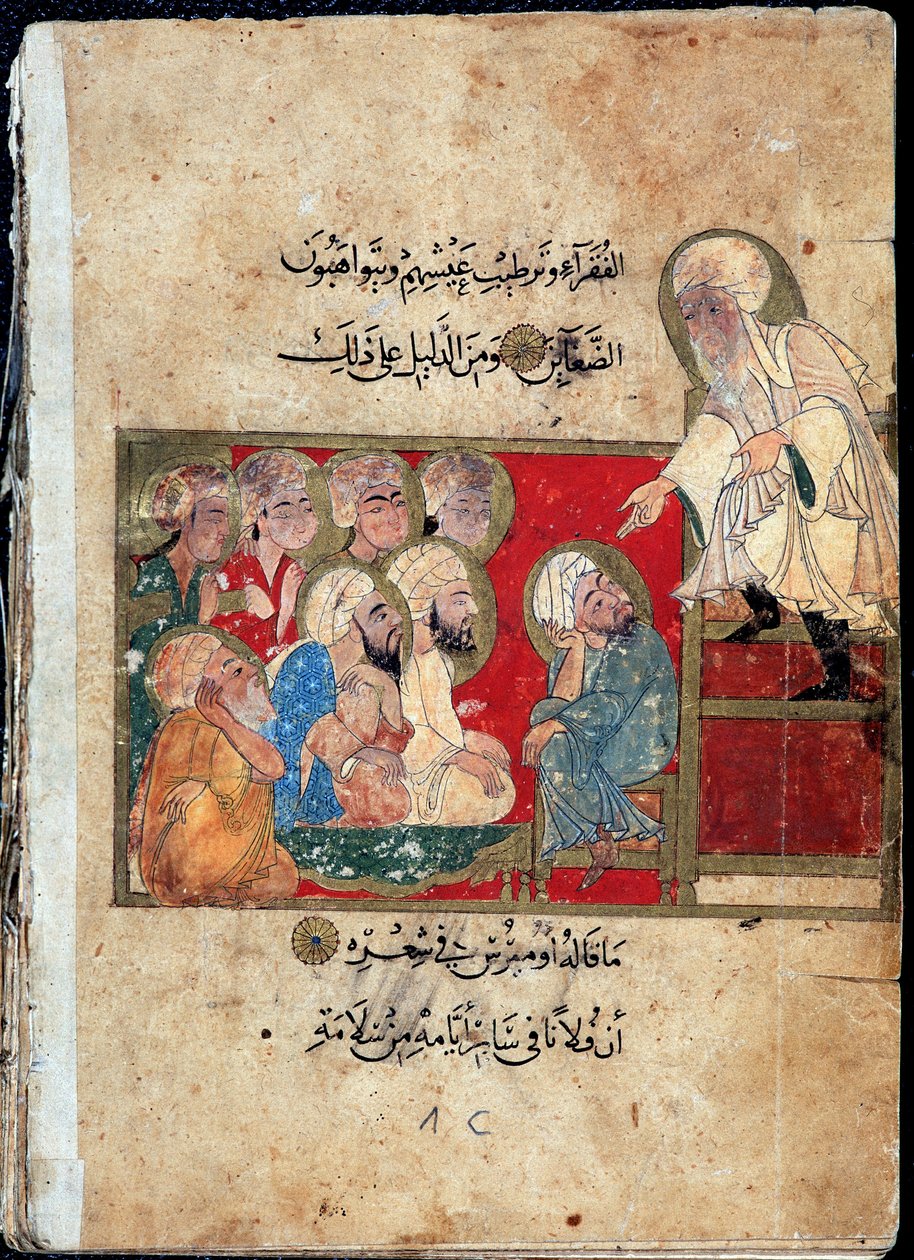 الفُقَرَآءِ وَتَرطِيبِ عَيْشِهِمْ وَيَتَواهَبُونَ
الضَّغَآيِنَ وَمِنَ الدَّلِيلِ عَلى ذَلِكَ
مَا قَالهُ أوميرُسْ في شِعْرِهْ
أن فُلانًا فى سَايرْ أيَّامِهْ مِنْ سَلَامَةِ
٨٢